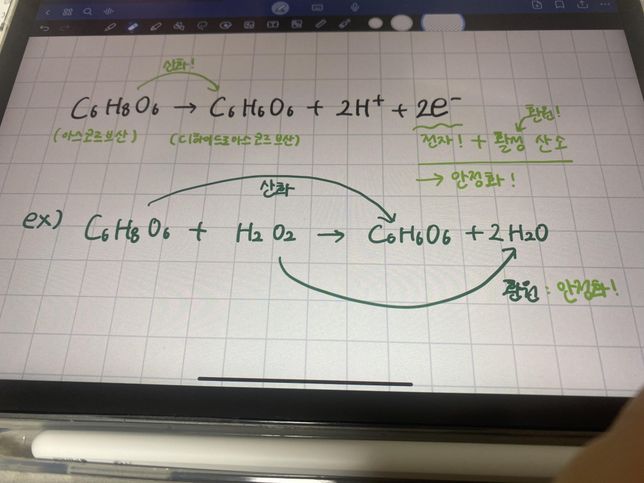 산화!
C₆H₈O₆ → C₆H₆O₆ + 2H⁺ + 2e⁻
환원!
(아스코르브산) (디하이드로아스코르브산) 전자! + 활성 산소
→ 안정화!
산화
ex) C₆H₈O₆ + H₂O₂ → C₆H₆O₆ + 2H₂O
환원 : 안정화!